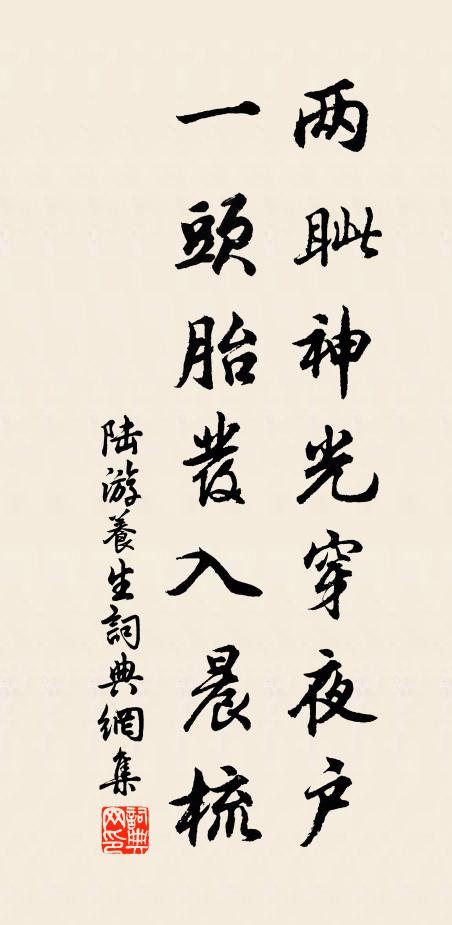 两眦神光穿夜户
一頭胎发入晨梳
陆游養生詞典網集
詞典网印